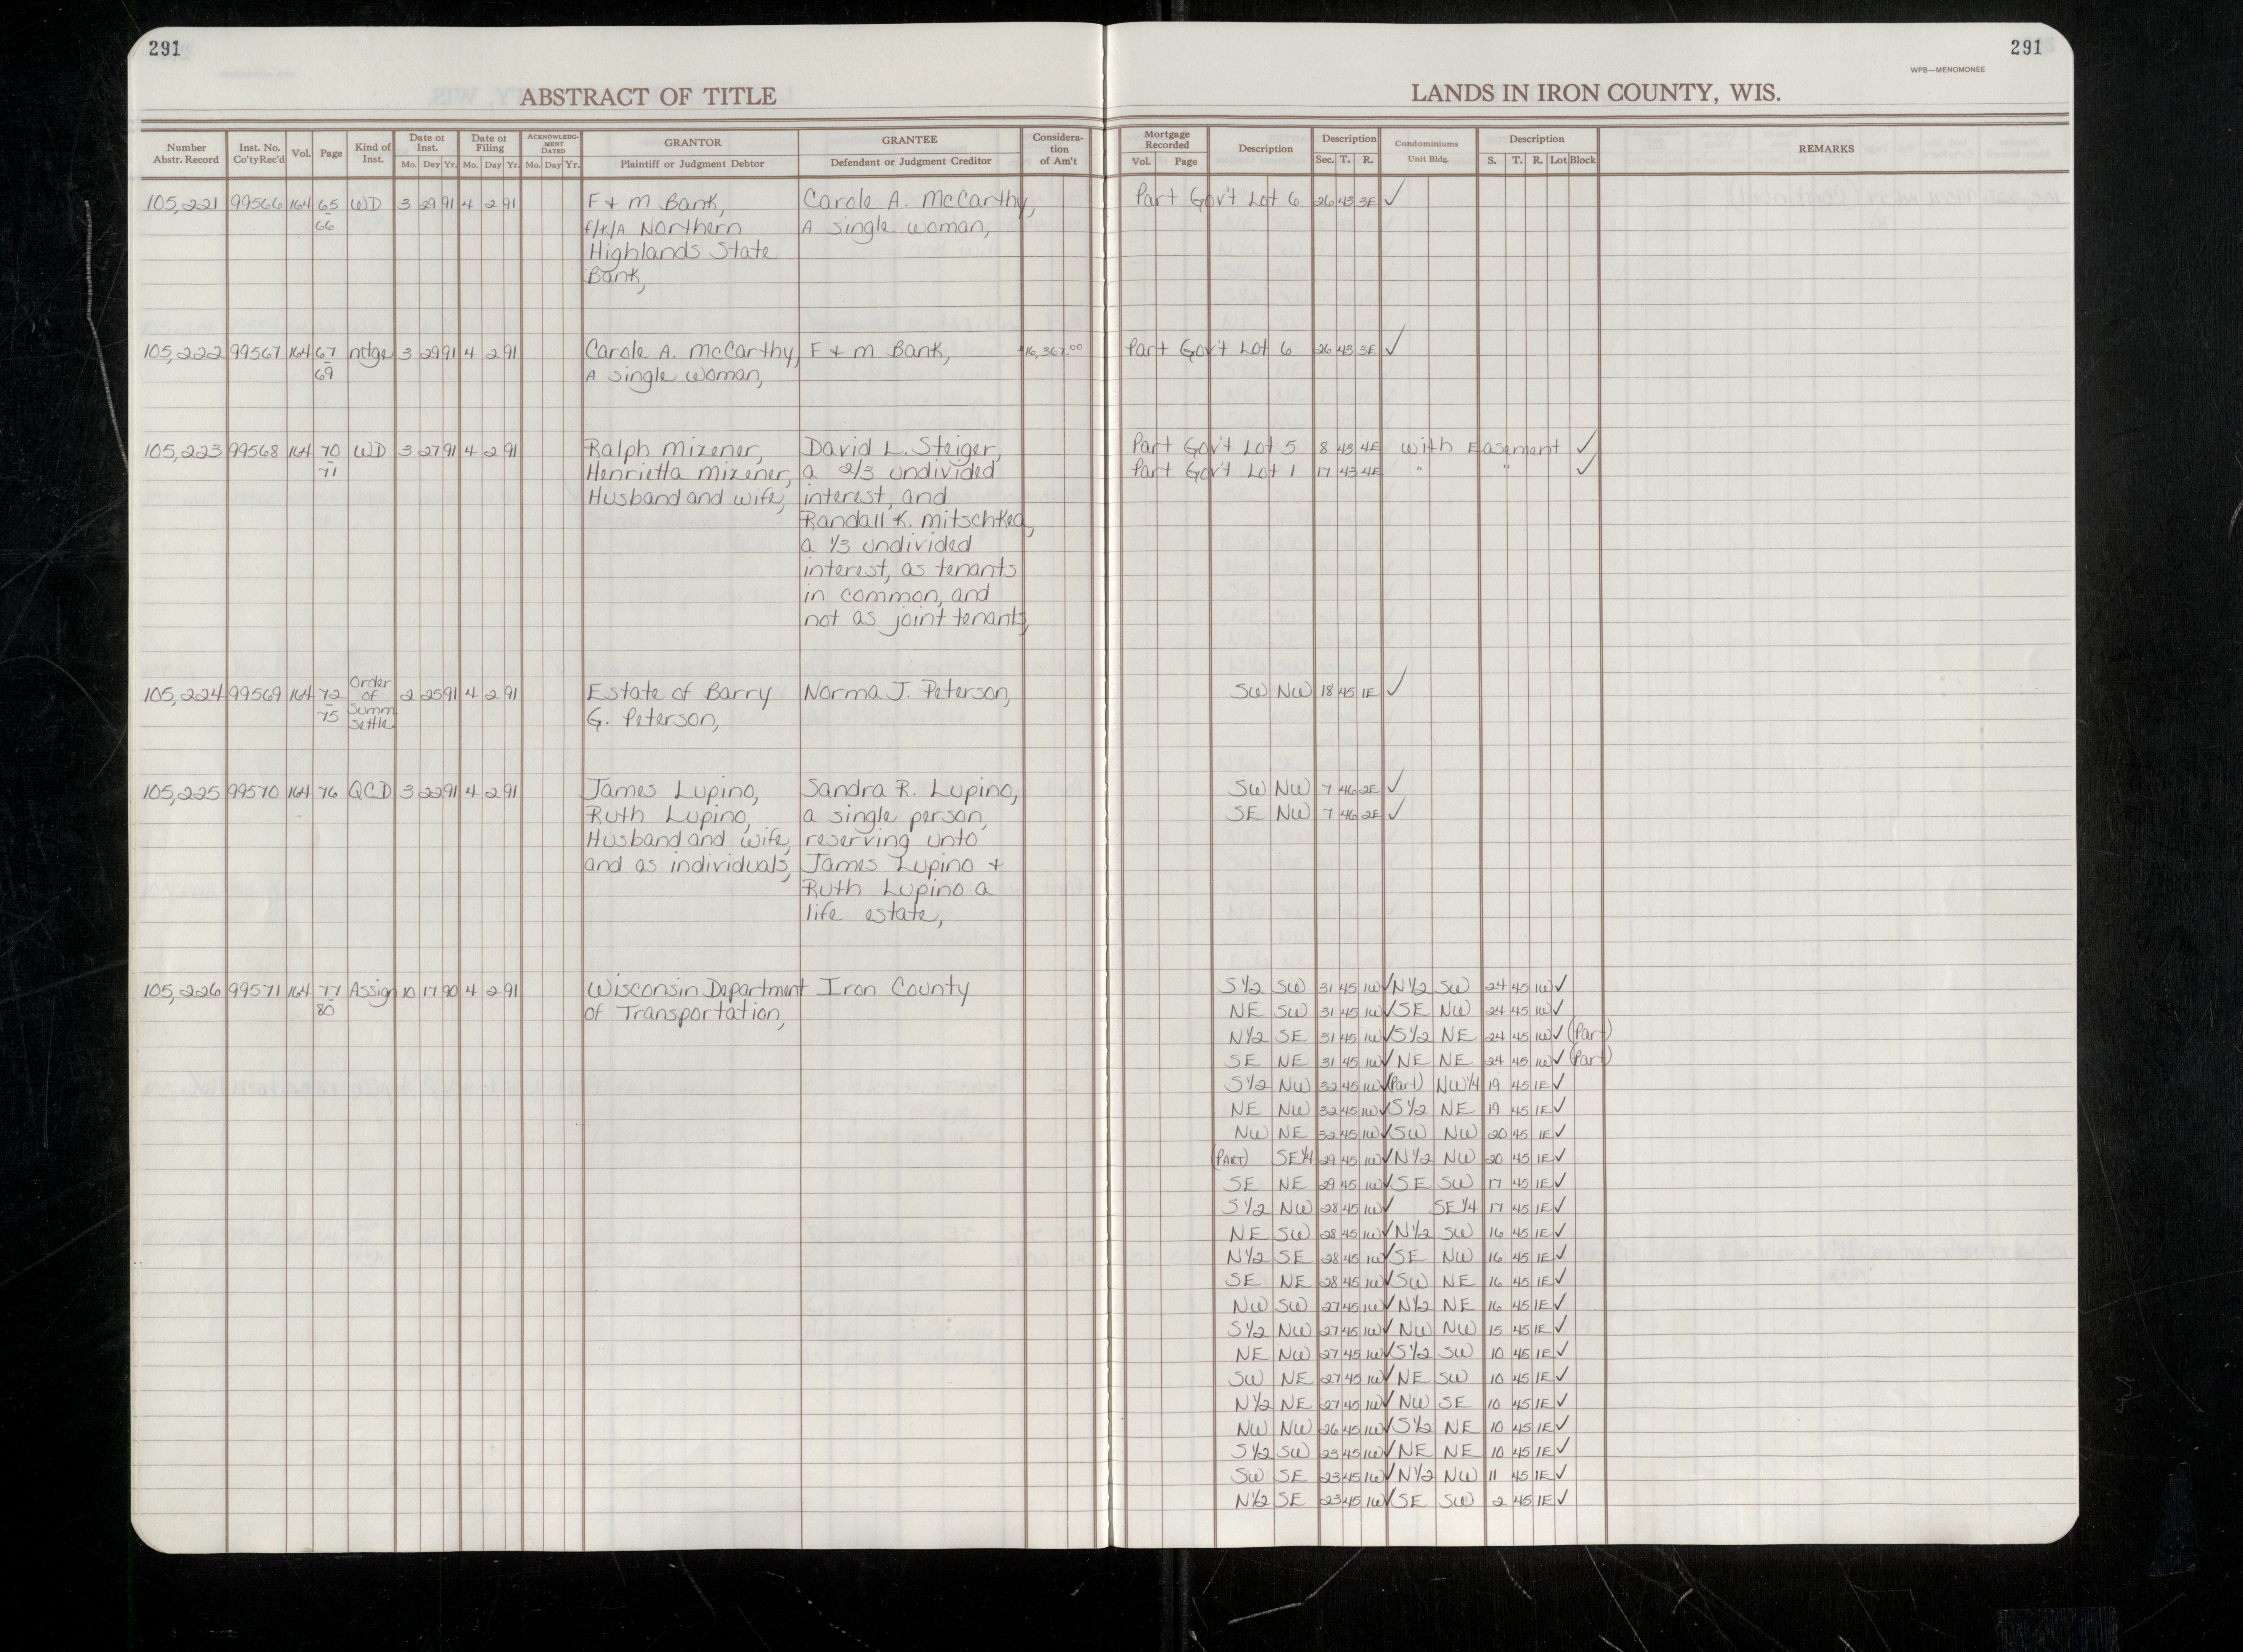 291
291
WPB—MENOMONEE
ABSTRACT OF TITLE
LANDS IN IRON COUNTY, WIS.
Number Abstr. Record
Inst. No. Co'ty Rec'd
Vol.
Page
Kind of Inst.
Date of Inst.
Mo. Day Yr.
Date of Filing
Mo. Day Yr.
ACKNOWLEDGMENT DATED
Mo. Day Yr.
GRANTOR
Plaintiff or Judgment Debtor
GRANTEE
Defendant or Judgment Creditor
Considera-tion of Am't
Mortgage Recorded
Vol. Page
Description
Description
Sec. T. R.
Condominiums
Unit Bldg.
Description
S. T. R. Lot Block
REMARKS
105,221 99566 164 65 WD 3 29 91 4 2 91 F & M Bank, Carole A. McCarthy, Part Gov't Lot 6 26 43 3E ✓
66 f/k/A Northern A single woman,
Highlands State
Bank,
105,222 99567 164 67 mtge 3 29 91 4 2 91 Carole A. McCarthy, F & M Bank, 16,367.00 Part Gov't Lot 6 26 43 3E ✓
69 A single woman,
105,223 99568 164 70 WD 3 27 91 4 2 91 Ralph Mizener, David L. Steiger, Part Gov't Lot 5 8 43 4E with Easement ✓
71 Henrietta Mizener, a 2/3 undivided Part Gov't Lot 1 17 43 4E " " ✓
Husband and wife, interest, and
Randall K. Mitschked,
a 1/3 undivided
interest, as tenants
in common, and
not as joint tenants,
105,224 99569 164 72 Order of Summ Settle. 2 25 91 4 2 91 Estate of Barry Norma J. Peterson, SW NW 18 45 1E ✓
75 G. Peterson,
105,225 99570 164 76 QCD 3 22 91 4 2 91 James Lupino, Sandra R. Lupino, SW NW 7 46 2E ✓
Ruth Lupino, a single person, SE NW 7 46 2E ✓
Husband and wife, reserving unto
and as individuals, James Lupino +
Ruth Lupino a
life estate,
105,226 99571 164 77 Assign 10 17 90 4 2 91 Wisconsin Department Iron County S1/2 SW 31 45 1W ✓ N1/2 SW 24 45 1W ✓
80 of Transportation, NE SW 31 45 1W ✓ SE NW 24 45 1W ✓
N1/2 SE 31 45 1W ✓ S1/2 NE 24 45 1W ✓ (Part)
SE NE 31 45 1W ✓ NE NE 24 45 1W ✓ (Part)
S1/2 NW 32 45 1W ✓ (Part) NW1/4 19 45 1E ✓
NE NW 32 45 1W ✓ S1/2 NE 19 45 1E ✓
NW NE 32 45 1W ✓ SW NW 20 45 1E ✓
(PART) SE1/4 29 45 1W ✓ N1/2 NW 20 45 1E ✓
SE NE 29 45 1W ✓ SE SW 17 45 1E ✓
S1/2 NW 28 45 1W ✓ SE1/4 17 45 1E ✓
NE SW 28 45 1W ✓ N1/2 SW 16 45 1E ✓
N1/2 SE 28 45 1W ✓ SE NW 16 45 1E ✓
SE NE 28 45 1W ✓ SW NE 16 45 1E ✓
NW SW 27 45 1W ✓ N1/2 NE 16 45 1E ✓
S1/2 NW 27 45 1W ✓ NW NW 15 45 1E ✓
NE NW 27 45 1W ✓ S1/2 SW 10 45 1E ✓
SW NE 27 45 1W ✓ NE SW 10 45 1E ✓
N1/2 NE 27 45 1W ✓ NW SE 10 45 1E ✓
NW NW 26 45 1W ✓ S1/2 NE 10 45 1E ✓
S1/2 SW 23 45 1W ✓ NE NE 10 45 1E ✓
SW SE 23 45 1W ✓ N1/2 NW 11 45 1E ✓
N1/2 SE 23 45 1W ✓ SE SW 2 45 1E ✓